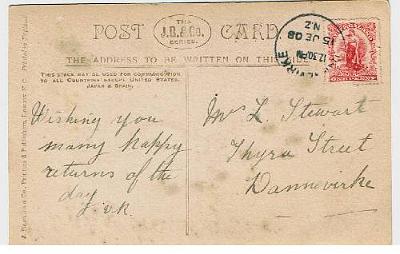 POST CARD
THE J.B.&Co. SERIES.
THE ADDRESS TO BE WRITTEN ON THIS SIDE
THIS SPACE MAY BE USED FOR COMMUNICATION
TO ALL COUNTRIES EXCEPT UNITED STATES,
JAPAN & SPAIN.
Wishing you
many happy
returns of the
day
Mrs L. Stewart
Thyra Street
Dannevirke
12.30 PM
15 JE 08
N.Z